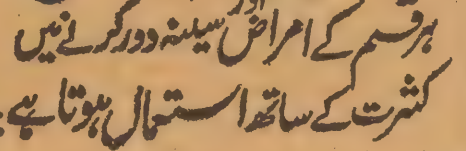 ہر قسم کے امراض سینہ دور کرنے میں
کثرت کے ساتھ استعمال ہوتا ہے۔